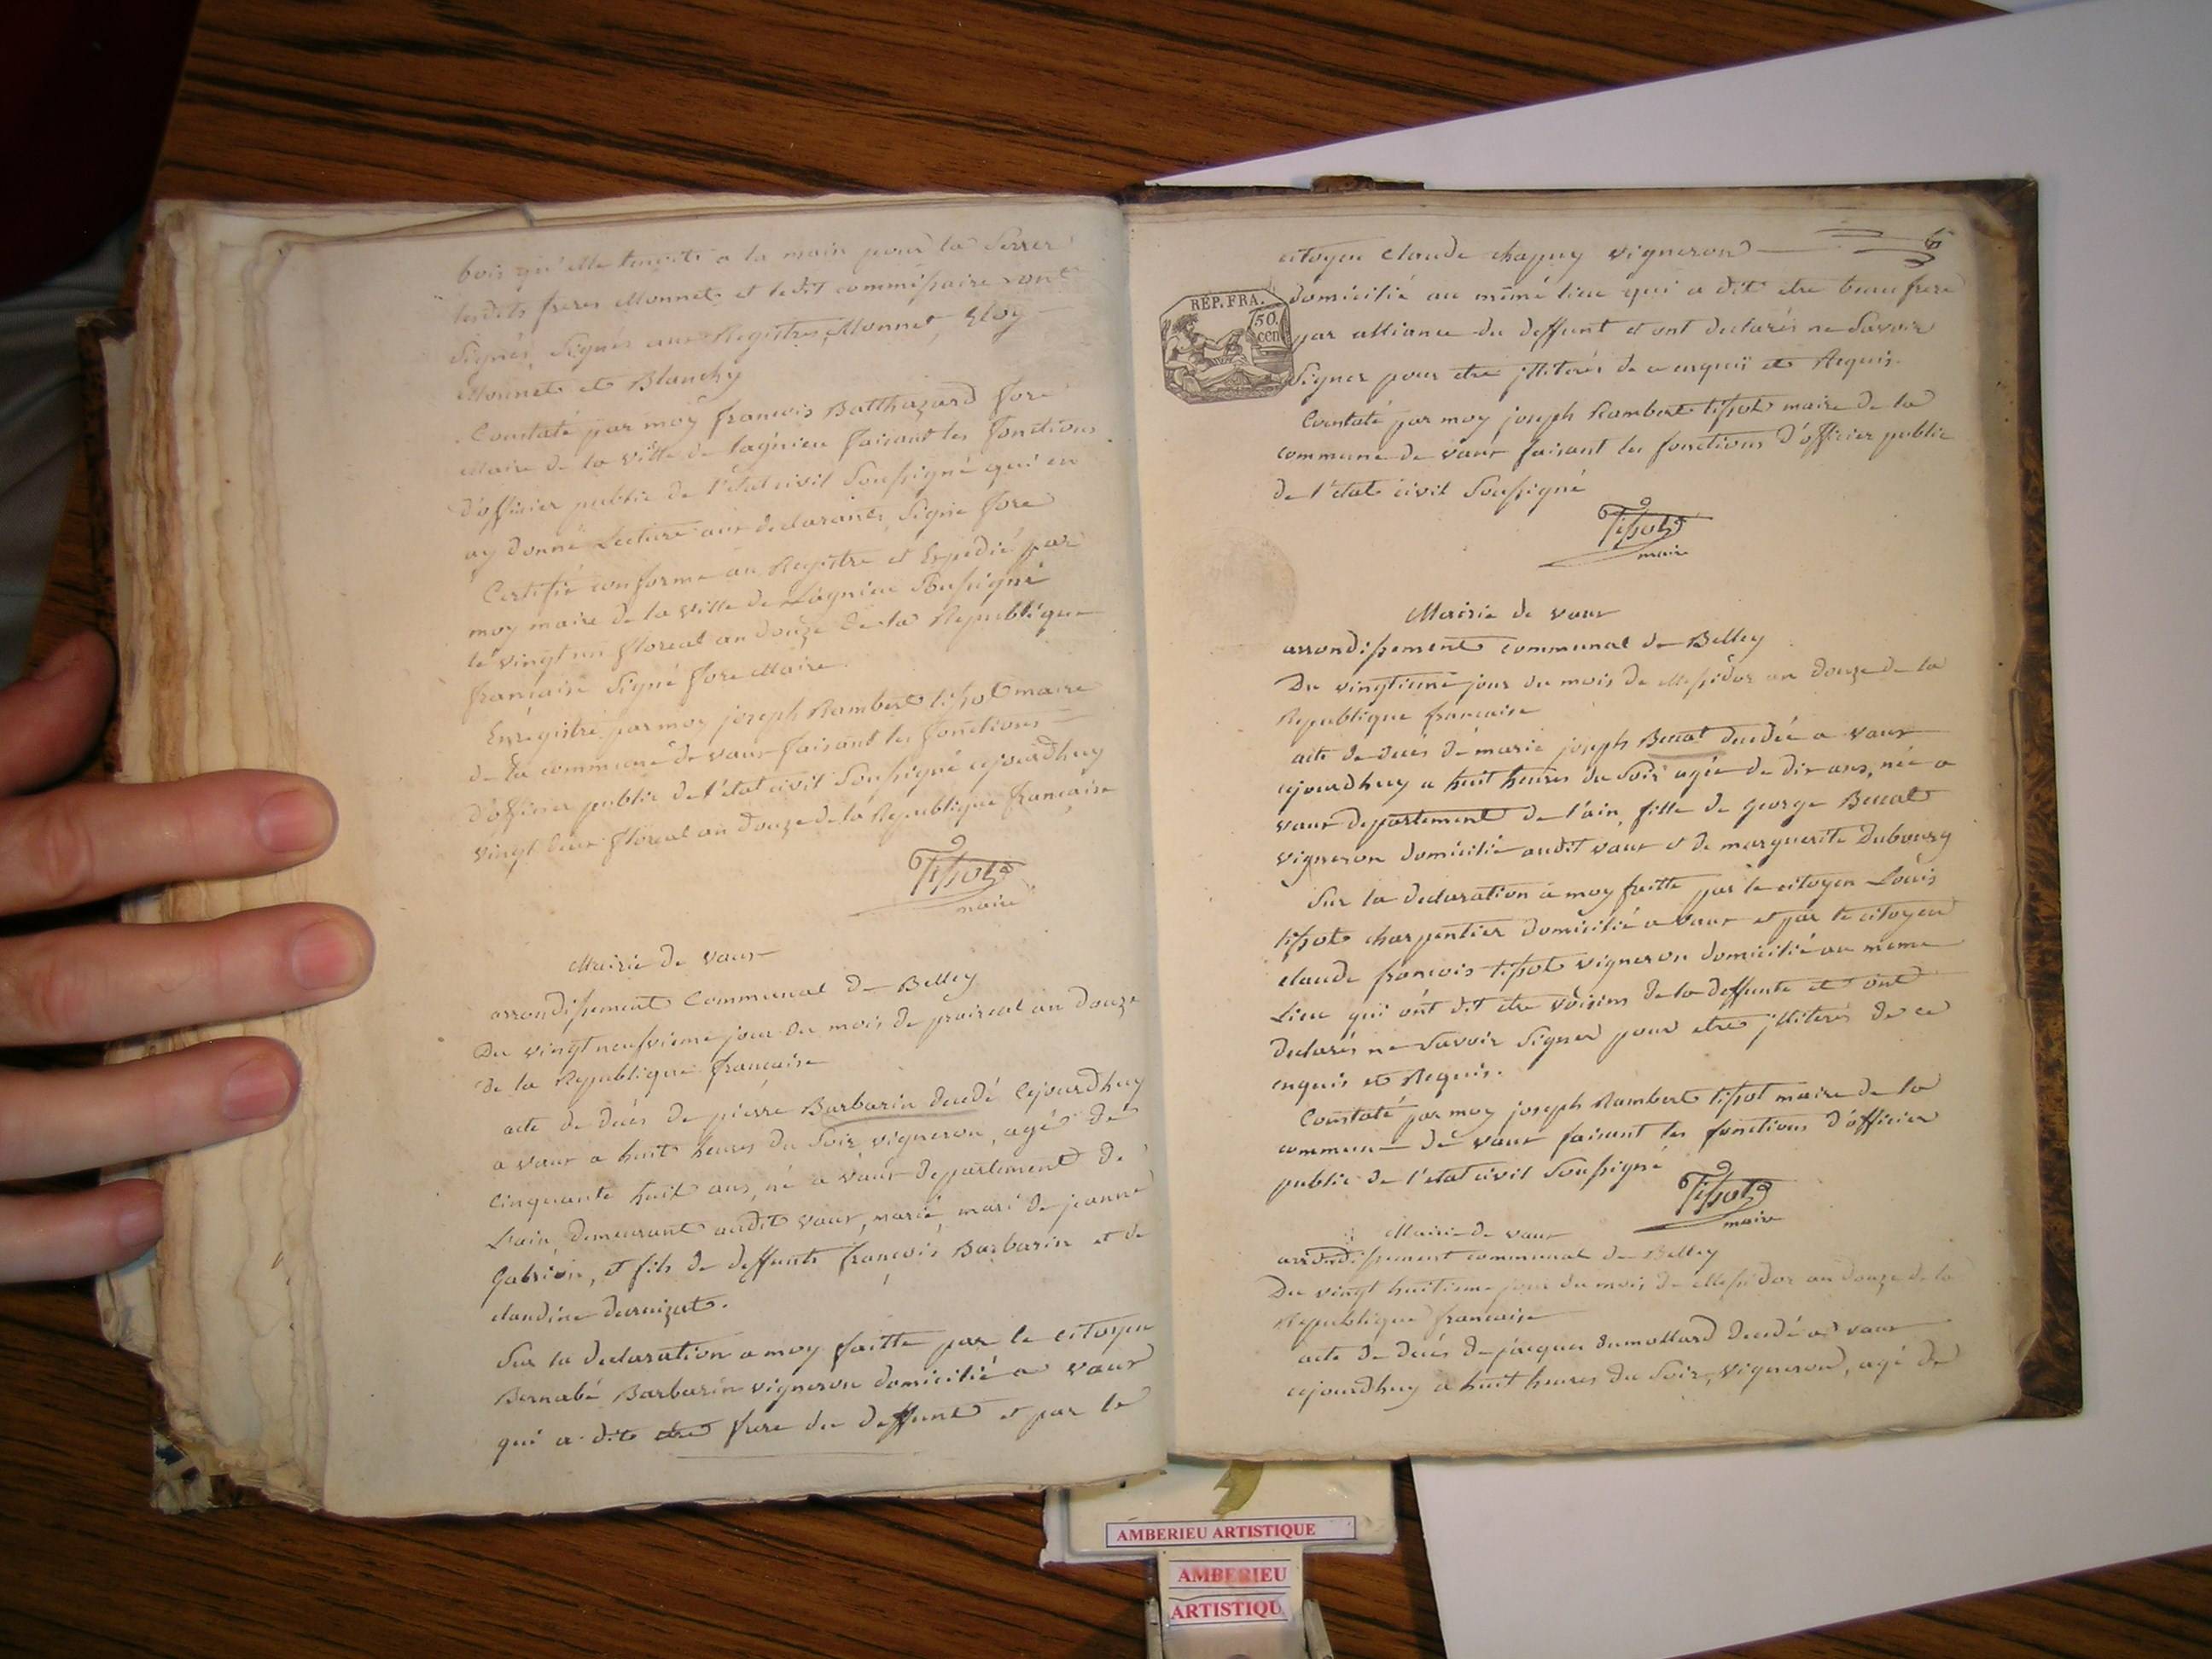 bois qu'elle tenoit a la main pour la serrer
lesdits freres Monnet et ledit commissaire sont
signés, signés aux Registres, Monnet, Eloy
Monnet et Blanchy
Constaté par moy francois Balthazard fore
Maire de la ville de lagnieu faisant les fonctions
d'officier public de l'état civil soussigné qui en
ay donné Lecture aux declarants, signé fore
Certifié conforme au Registre et Expedié par
moy maire de la ville de Lagnieu soussigné
le vingt un floreal an douze de la Republique
francaise signé fore Maire.
Enregistré par moy joseph Rambert tissot maire
de la commune de vaux faisant les fonctions
d'officier public de l'état civil soussigné cejourdhuy
vingt deux floreal an douze de la Republique francaise
Tissot
maire
Mairie de vaux
arrondissement Communal de Belley
Du vingt neufvieme jour du mois de prairial an douze
de la Republique francaise
acte de decés de pierre Barbarin decedé cejourdhuy
a vaux a huit heures du soir vigneron, agé de
cinquante huit ans, né a vaux departement de
L'ain, demeurant audit vaux, marié, mari de jeanne
, et fils de deffunts francois Barbarin et de
claudine
Sur la declaration a moy faitte par le citoyen
Bernabé Barbarin vigneron domicilié a vaux
qui a dit etre frere du deffunt et par le
citoyen Claude chapuy vigneron
6
RÉP. FRA.
50.
cen
domicilié au même lieu qui a dit etre beaufrere
par alliance du deffunt et ont declarés ne savoir
signer pour etre illiterés de ce enquis et Requis.
Constaté par moy joseph Rambert tissot maire de la
commune de vaux faisant les fonctions d'officier public
de l'état civil soussigné
Tissot
maire
Mairie de vaux
arrondissement communal de Belley
Du vingtieme jour du mois de Messidor an douze de la
Republique francaise
acte de decés de marie joseph Beccat decedée a vaux
cejourdhuy a huit heures du soir agée de dix ans, née a
vaux departement de l'ain, fille de george Beccat
vigneron domicilié audit vaux et de marguerite Dubourg
Sur la declaration a moy faitte par le citoyen Louis
tissot charpentier domicilié a vaux et par le citoyen
claude francois tissot vigneron domicilié au meme
Lieu qui ont dit etre voisins de la deffunte et ont
declarés ne savoir signer pour etre illiterés de ce
enquis et Requis.
Constaté par moy joseph Rambert tissot maire de la
commune de vaux faisant les fonctions d'officier
public de l'état civil soussigné
Tissot
maire
Mairie de vaux
arrondissement communal de Belley
Du vingt huitieme jour du mois de Messidor an douze de la
Republique francaise
acte de decés de jacques dumollard decedé a vaux
cejourdhuy a huit heures du soir, vigneron, agé de
AMBERIEU ARTISTIQUE
AMBERIEU
ARTISTIQU